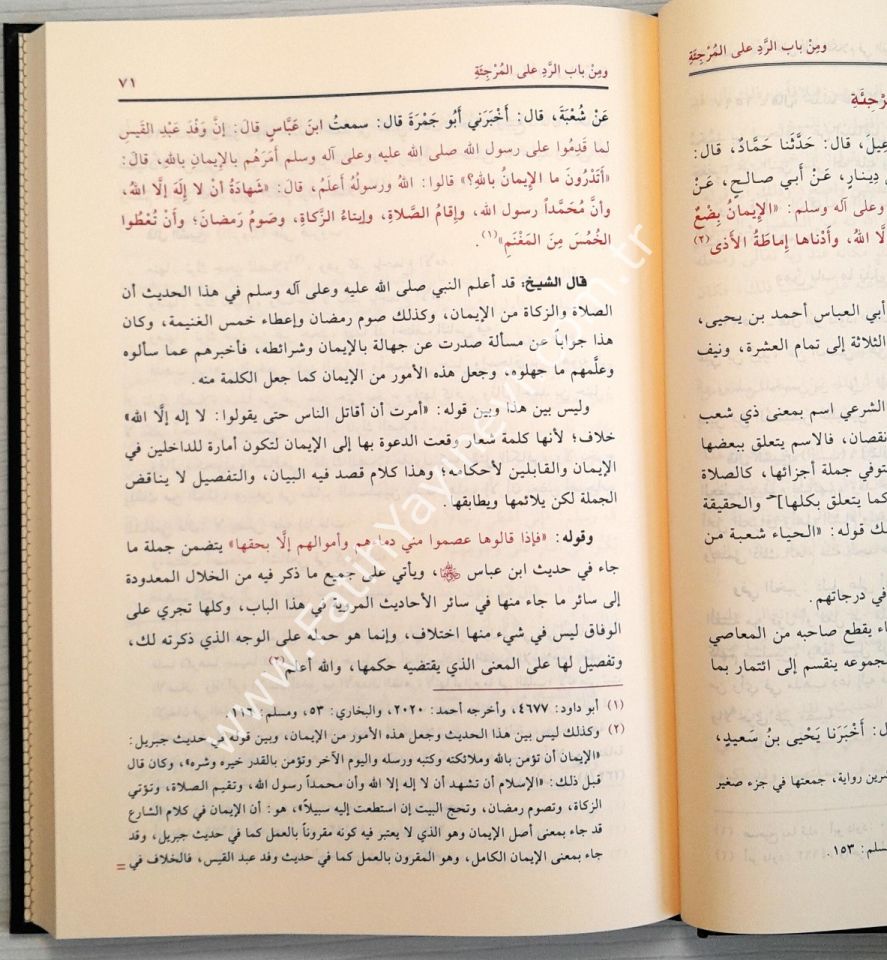 ومِنْ باب الرَّدِ على المُرْجِئَةِ
عِيلَ، قال: حَدَّثَنا حَمَّادٌ، قال:
دِينارٍ، عَنْ أبي صالحٍ، عَنْ
وعلى آله وسلم: «الإيمانُ بِضْعٌ
لَّا اللهُ، وأَدْناها إماطَةُ الأَذى (٢)
أبي العباس أحمد بن يحيى،
الثلاثة إلى تمام العشرة، ونيف
الشرعي اسم بمعنى ذي شعب
نقصان، فالاسم يتعلق ببعضها
جملة أجزائها، كالصلاة
كما يتعلق بكلها] والحقيقة
قوله: «الحياء شعبة من
في درجاتهم.
يقطع صاحبه من المعاصي
مجموعه ينقسم إلى ائتمار بما
قال: أَخْبَرَنا يَحْيى بنُ سَعيدٍ،
رواية، جمعتها في جزء صغير
١٥٣.
ومِنْ باب الرَّدِ على المُرْجِئَةِ ٧١
عَنْ شُعْبَةَ، قال: أَخْبَرَني أَبُو جَمْرَةَ قال: سمعتُ ابنَ عَبَّاسٍ قالَ: إنَّ وَفْدَ عَبْدِ القَيسِ
لما قَدِمُوا على رسول الله صلى الله عليه وعلى آله وسلم أمَرَهُم بالإيمانِ باللهِ، قال:
«أَتَدْرُونَ ما الإيمانُ باللهِ؟» قالوا: اللهُ ورسولُهُ أَعلَمُ، قالَ: «شَهادَةُ أنْ لا إلَهَ إلَّا اللهُ،
وأنَّ مُحَمَّداً رسول الله، وإقامُ الصَّلاةِ، وإيتاءُ الزَّكاةِ، وصَومُ رمَضانَ؛ وأنْ تُعْطُوا
الخُمُسَ مِنَ المَغْنَمِ»(١).
قال الشيخ: قد أعلم النبي صلى الله عليه وعلى آله وسلم في هذا الحديث أن
الصلاة والزكاة من الإيمان، وكذلك صوم رمضان وإعطاء خمس الغنيمة، وكان
هذا جواباً عن مسألة صدرت عن جهالة بالإيمان وشرائطه، فأخبرهم عما سألوه
وعلَّمهم ما جهلوه، وجعل هذه الأمور من الإيمان كما جعل الكلمة منه.
وليس بين هذا وبين قوله: «أمرت أن أقاتل الناس حتى يقولوا: لا إله إلَّا الله»
خلاف؛ لأنها كلمة شعار وقعت الدعوة بها إلى الإيمان لتكون أمارة للداخلين في
الإيمان والقابلين لأحكامه؛ وهذا كلام قصد فيه البيان، والتفصيل لا يناقض
الجملة لكن يلائمها ويطابقها.
وقوله: «فإذا قالوها عصموا مني دماءهم وأموالهم إلَّا بحقها» يتضمن جملة ما
جاء في حديث ابن عباس ﷺ، ويأتي على جميع ما ذكر فيه من الخلال المعدودة
إلى سائر ما جاء منها في سائر الأحاديث المروية في هذا الباب، وكلها تجري على
الوفاق ليس في شيء منها اختلاف، وإنما هو حمله على الوجه الذي ذكرته لك،
وتفصيل لها على المعنى الذي يقتضيه حكمها، والله أعلم(٢)
(١) أبو داود: ٤٦٧٧، وأخرجه أحمد: ٢٠٢٠، والبخاري: ٥٣، ومسلم: ١١٦.
(٢) وكذلك ليس بين هذا الحديث وجعل هذه الأمور من الإيمان، وبين قوله في حديث جبريل:
«الإيمان أن تؤمن بالله وملائكته وكتبه ورسله واليوم الآخر وتؤمن بالقدر خيره وشره»، وكان قال
قبل ذلك: «الإسلام أن تشهد أن لا إله إلا الله وأن محمداً رسول الله، وتقيم الصلاة، وتؤتي
الزكاة، وتصوم رمضان، وتحج البيت إن استطعت إليه سبيلاً»، هو: أن الإيمان في كلام الشارع
قد جاء بمعنى أصل الإيمان وهو الذي لا يعتبر فيه كونه مقروناً بالعمل كما في حديث جبريل، وقد
جاء بمعنى الإيمان الكامل، وهو المقرون بالعمل كما في حديث وفد عبد القيس، فالخلاف في =
www.FatihYayinevi.com.tr